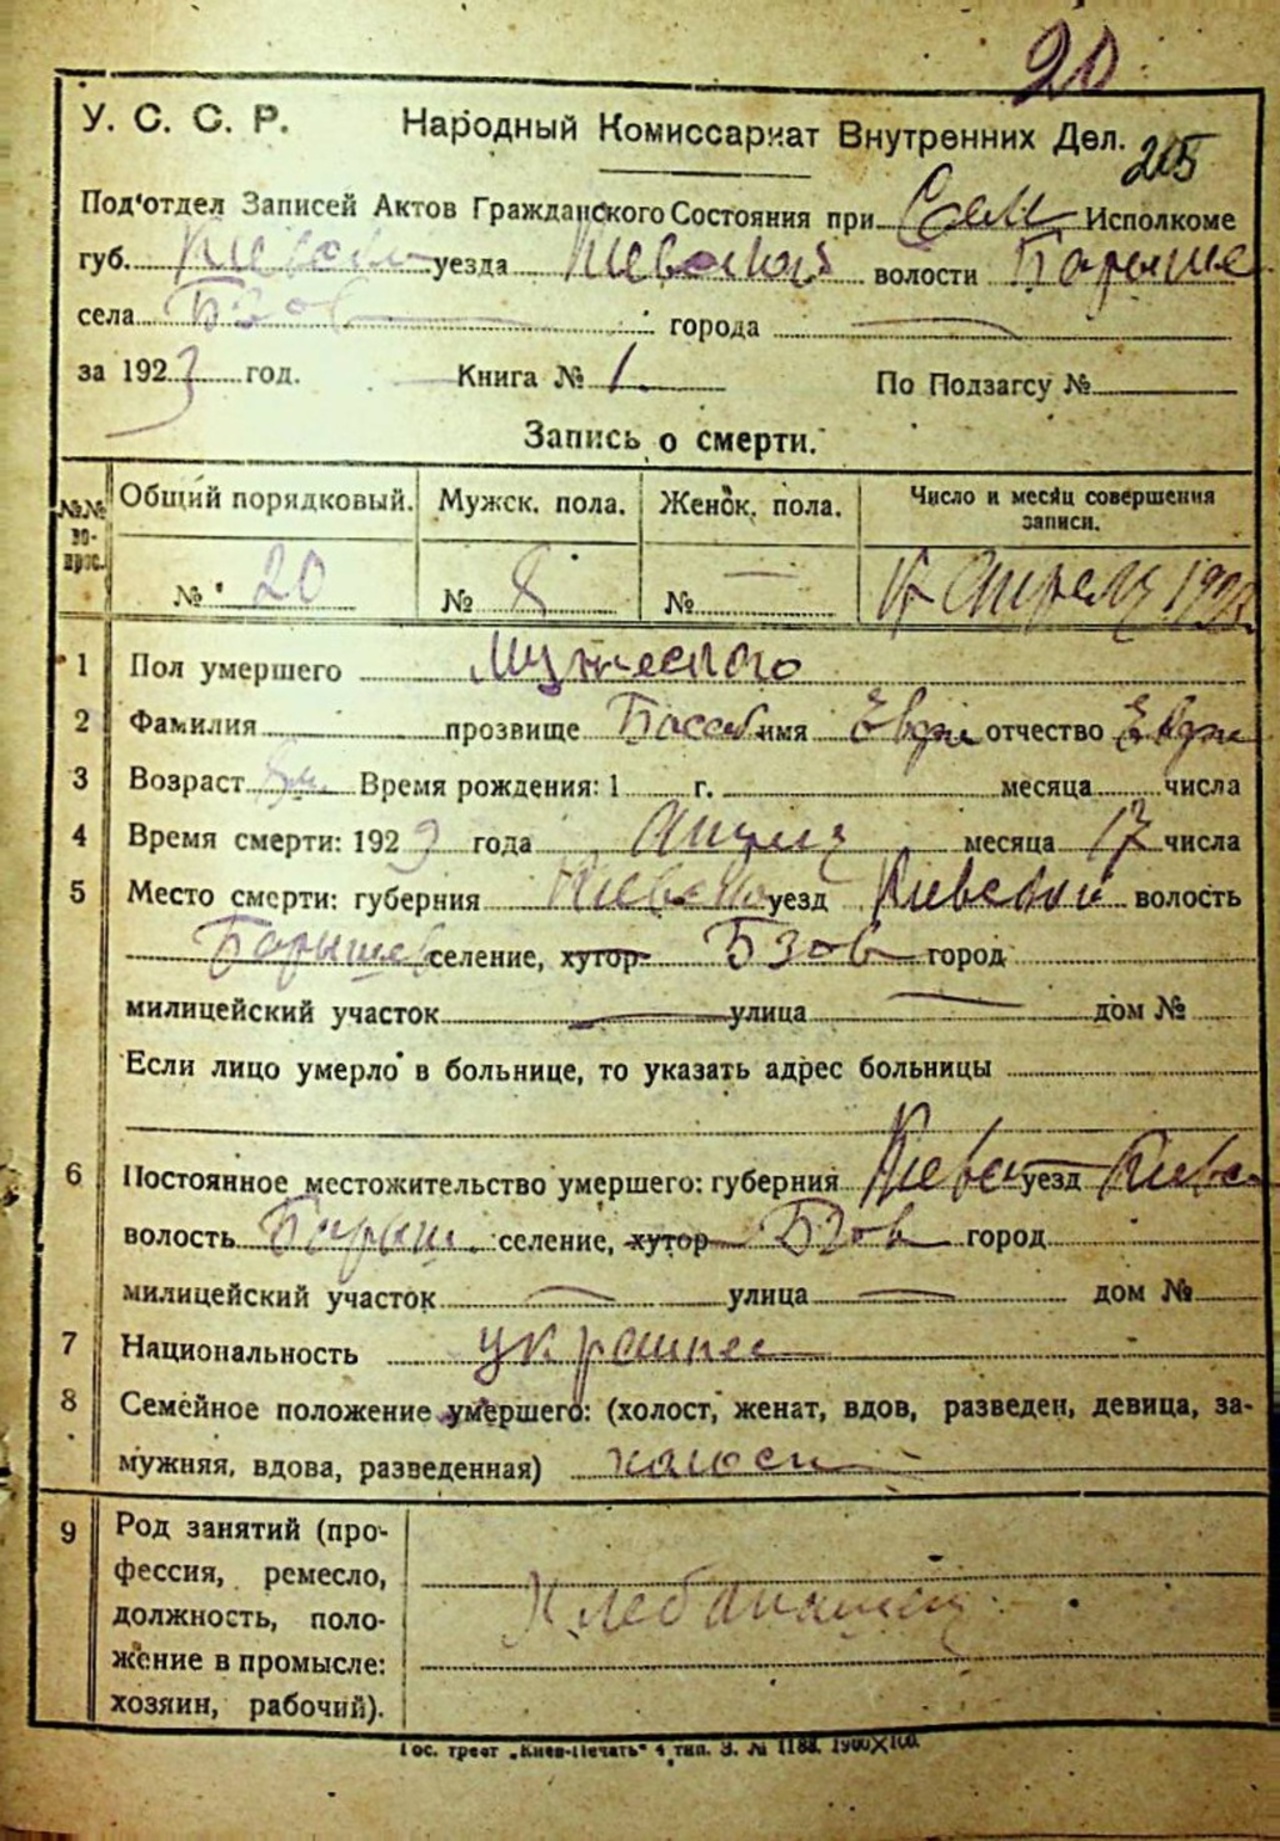 20
У. С. С. Р. Народный Комиссариат Внутренних Дел.
205
Под'отдел Записей Актов Гражданского Состояния при Сел Исполкоме
губ. Киевск уезда Киевской волости Барыше
села Бзов города
за 1923 год. Книга № 1. По Подзагсу №
Запись о смерти.
№№ во-прос. Общий порядковый. Мужск. пола. Женск. пола. Число и месяц совершения записи.
№ 20 № 8 № — 17 Апреля 1923
1 Пол умершего Мужеского
2 Фамилия прозвище имя Евдж отчество
3 Возраст Время рождения: 1 г. месяца числа
4 Время смерти: 1923 года Апреля месяца 17 числа
5 Место смерти: губерния Киевско уезд Киевской волость
Барышев селение, хутор Бзов город
милицейский участок — улица — дом №
Если лицо умерло в больнице, то указать адрес больницы
6 Постоянное местожительство умершего: губерния Киевс уезд Киевс
волость Барыш. селение, хутор Бзов город
милицейский участок — улица — дом №
7 Национальность украинец
8 Семейное положение умершего: (холост, женат, вдов, разведен, девица, за-
мужняя, вдова, разведенная) холост
9 Род занятий (про-
фессия, ремесло,
должность, поло-
жение в промысле:
хозяин, рабочий).
Хлебопашец
Гос. трест „Киев-Печать" 4 тип. З. № 1188. 1900X100.